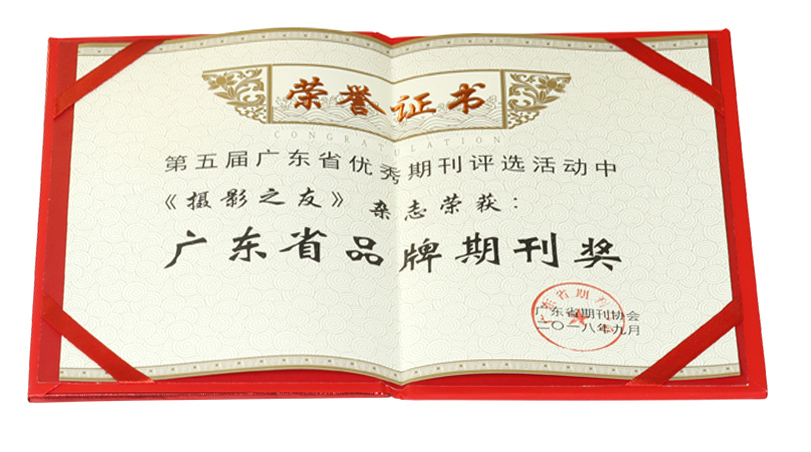 荣誉证书
CONGRATULATION
第五届广东省优秀期刊评选活动中
《摄影之友》杂志荣获：
广东省品牌期刊奖
广东省期刊协会
二〇一八年九月